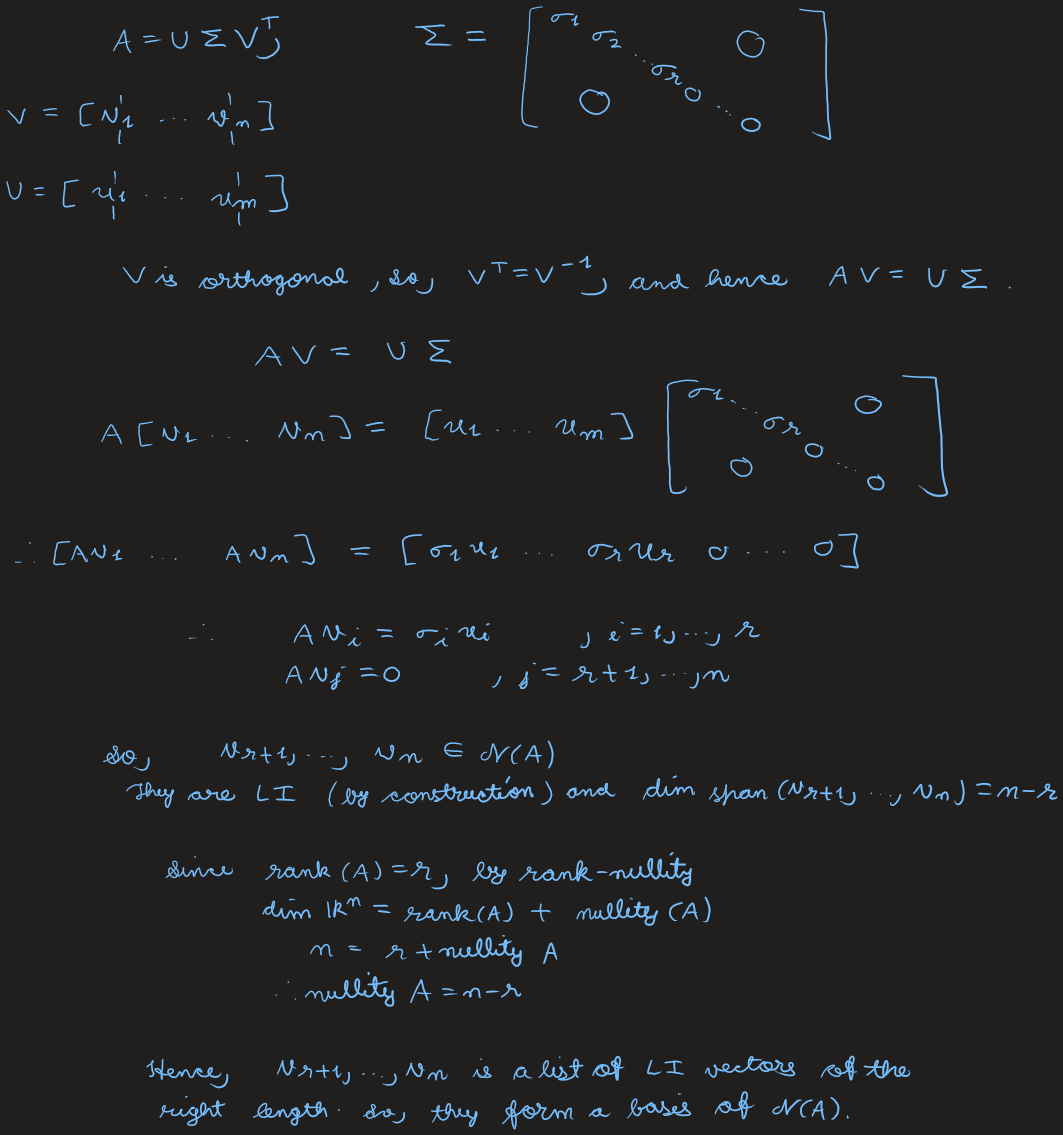 A = U Σ Vᵀ, Σ = [σ₁ σ₂ ... σᵣ 0 ... 0 0 0]
V = [v₁ ... vₙ]
U = [u₁ ... uₘ]
V is orthogonal, so, Vᵀ = V⁻¹, and hence A V = U Σ .
A V = U Σ
A [v₁ ... vₙ] = [u₁ ... uₘ] [σ₁ ... σᵣ 0 ... 0 0 0]
∴ [Av₁ ... Avₙ] = [σ₁u₁ ... σᵣuᵣ 0 ... 0]
∴ Avᵢ = σᵢuᵢ , i = 1, ..., r
Avⱼ = 0 , j = r+1, ..., n
so, vᵣ₊₁, ..., vₙ ∈ N(A)
They are LI (by construction) and dim span (vᵣ₊₁, ..., vₙ) = n-r
since rank (A) = r, by rank-nullity
dim ℝⁿ = rank(A) + nullity (A)
n = r + nullity A
∴ nullity A = n-r
Hence, vᵣ₊₁, ..., vₙ is a list of LI vectors of the
right length. so, they form a basis of N(A).